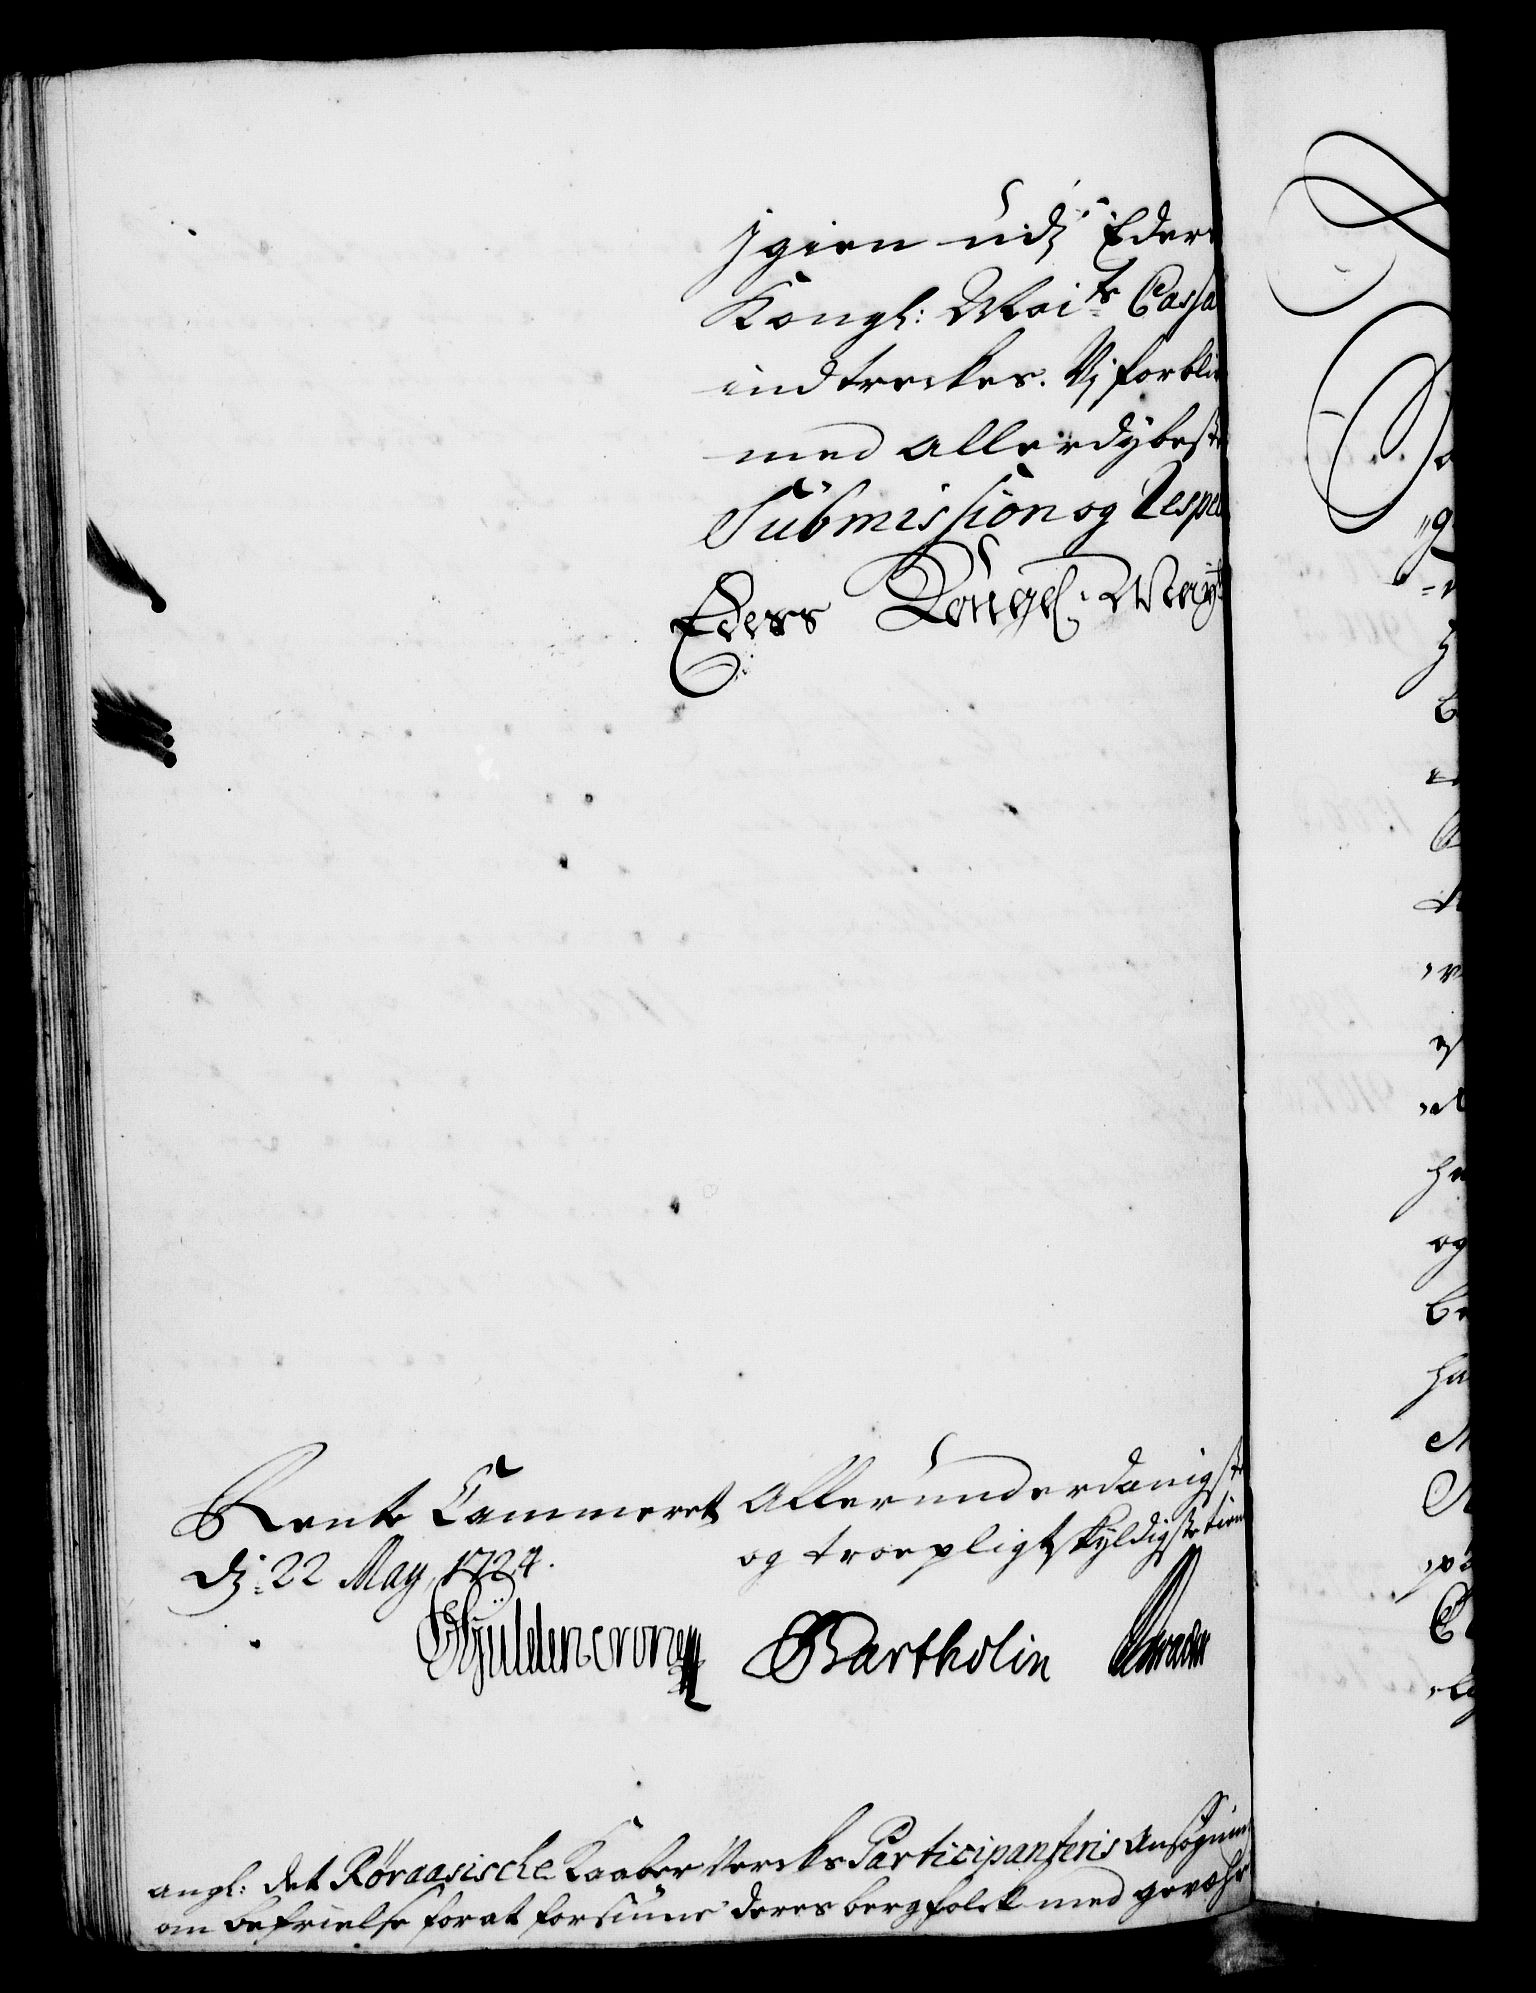 Igien udj Eders
Kongl: Maits Cassa
indtreckes. Vj forbli
med allerdybeste
Submission og Respe
Eders Kongel. Mayts
Rente Cammeret
dj: 22 May, 1724.
Allerunderdanigste
og troepligtskyldigste tien
Gyldencrone
Bartholin
angl: det Røraasische Kaaber Vercks Participanteris Ansøgning
om befrielse for at forsiune deres bergfolck med gevæhr